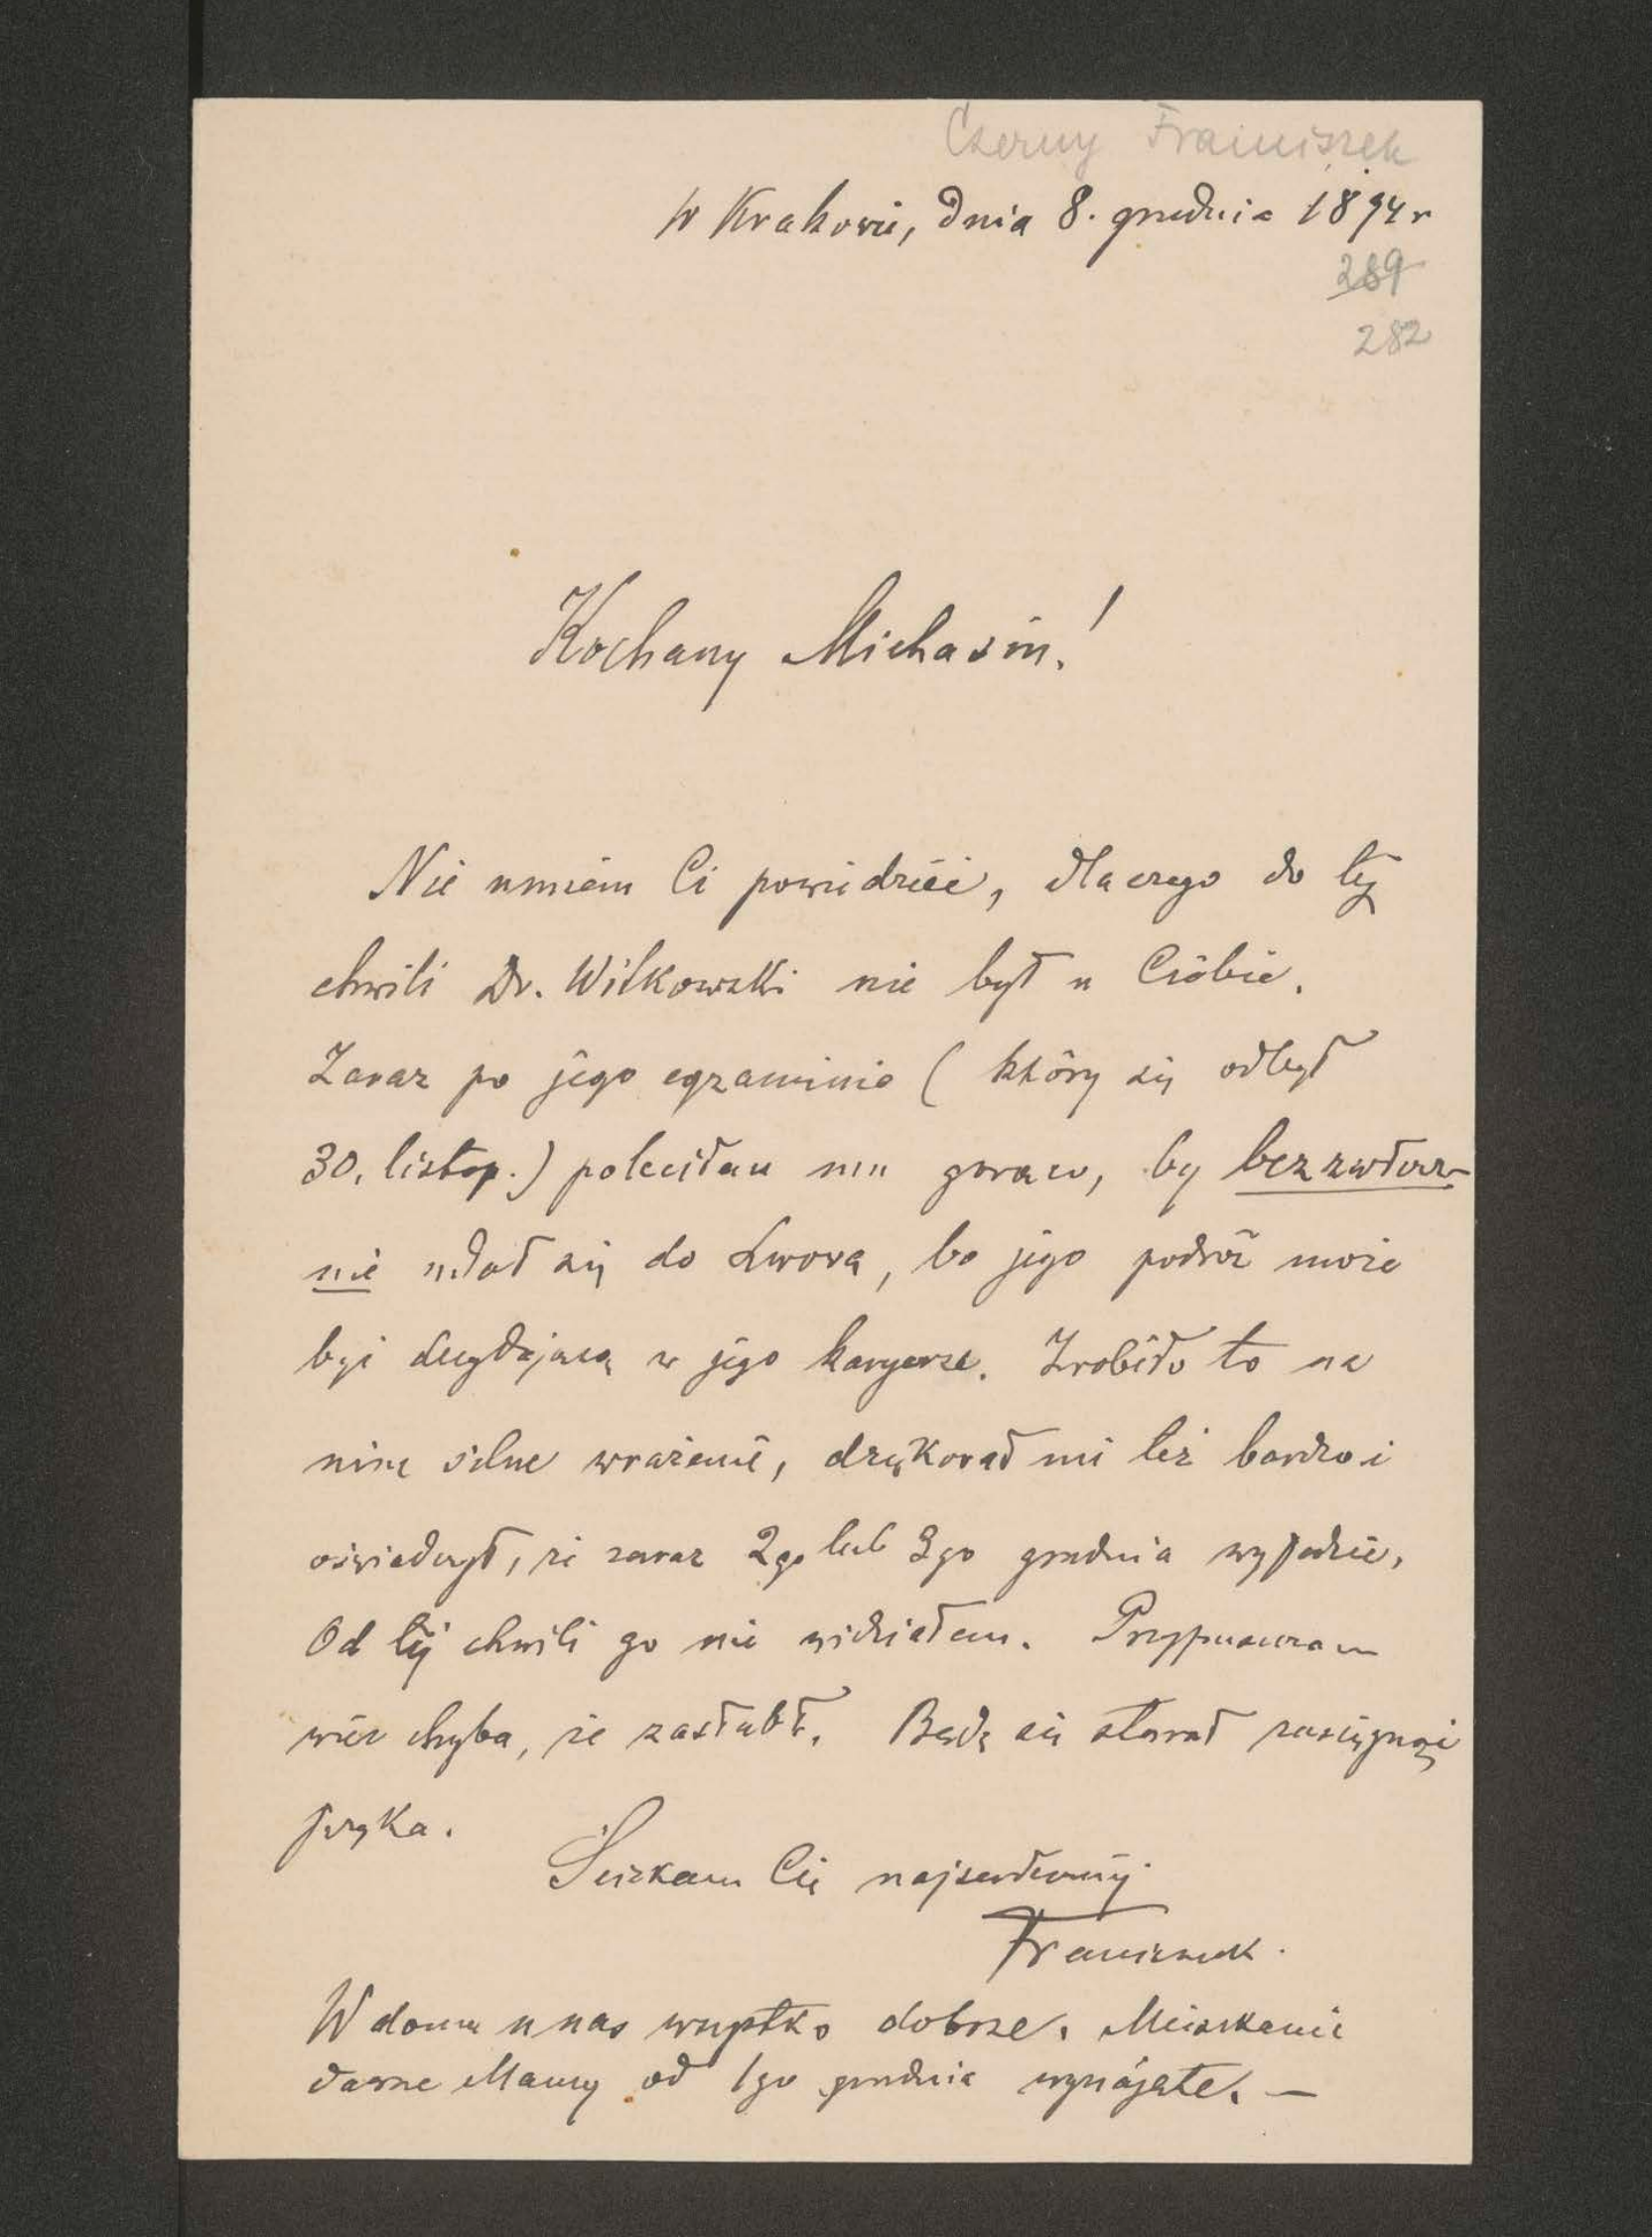 Czerny Franciszek
W Krakowie, dnia 8. grudnia 1894 r
289
282
Kochany Michasiu!
Nie umiem Ci powiedzieć, dlaczego do tej
chwili Dr. Witkowski nie był u Ciebie.
Zaraz po jego egzaminie (który się odbył
30. listop.) poleciłem mu gorąco, by bezzwłocz-
nie udał się do Lwowa, bo jego podróż może
być decydującą w jego karyerze. Zrobiło to na
nim silne wrażenie, dziękował mi też bardzo i
oświadczył, że zaraz 2go lub 3go grudnia wyjedzie.
Od tej chwili go nie widziałem. Przypuszczam
więc chyba, że zasłabł. Będę się starał zasięgnąć
języka.
Ściskam Cię najserdeczniej
Franciszek.
W domu u nas wszystko dobrze. Mieszkanie
dawne Mamy od 1go grudnia wynajęte. —